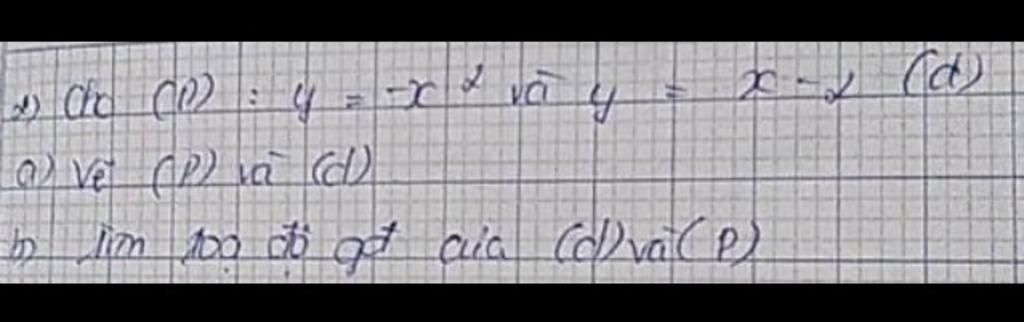 2) Cho (P) : y = -x² và y = x - 2 (d)
a) Vẽ (P) và (d)
b) Tìm toạ độ gđ của (d) và (P)